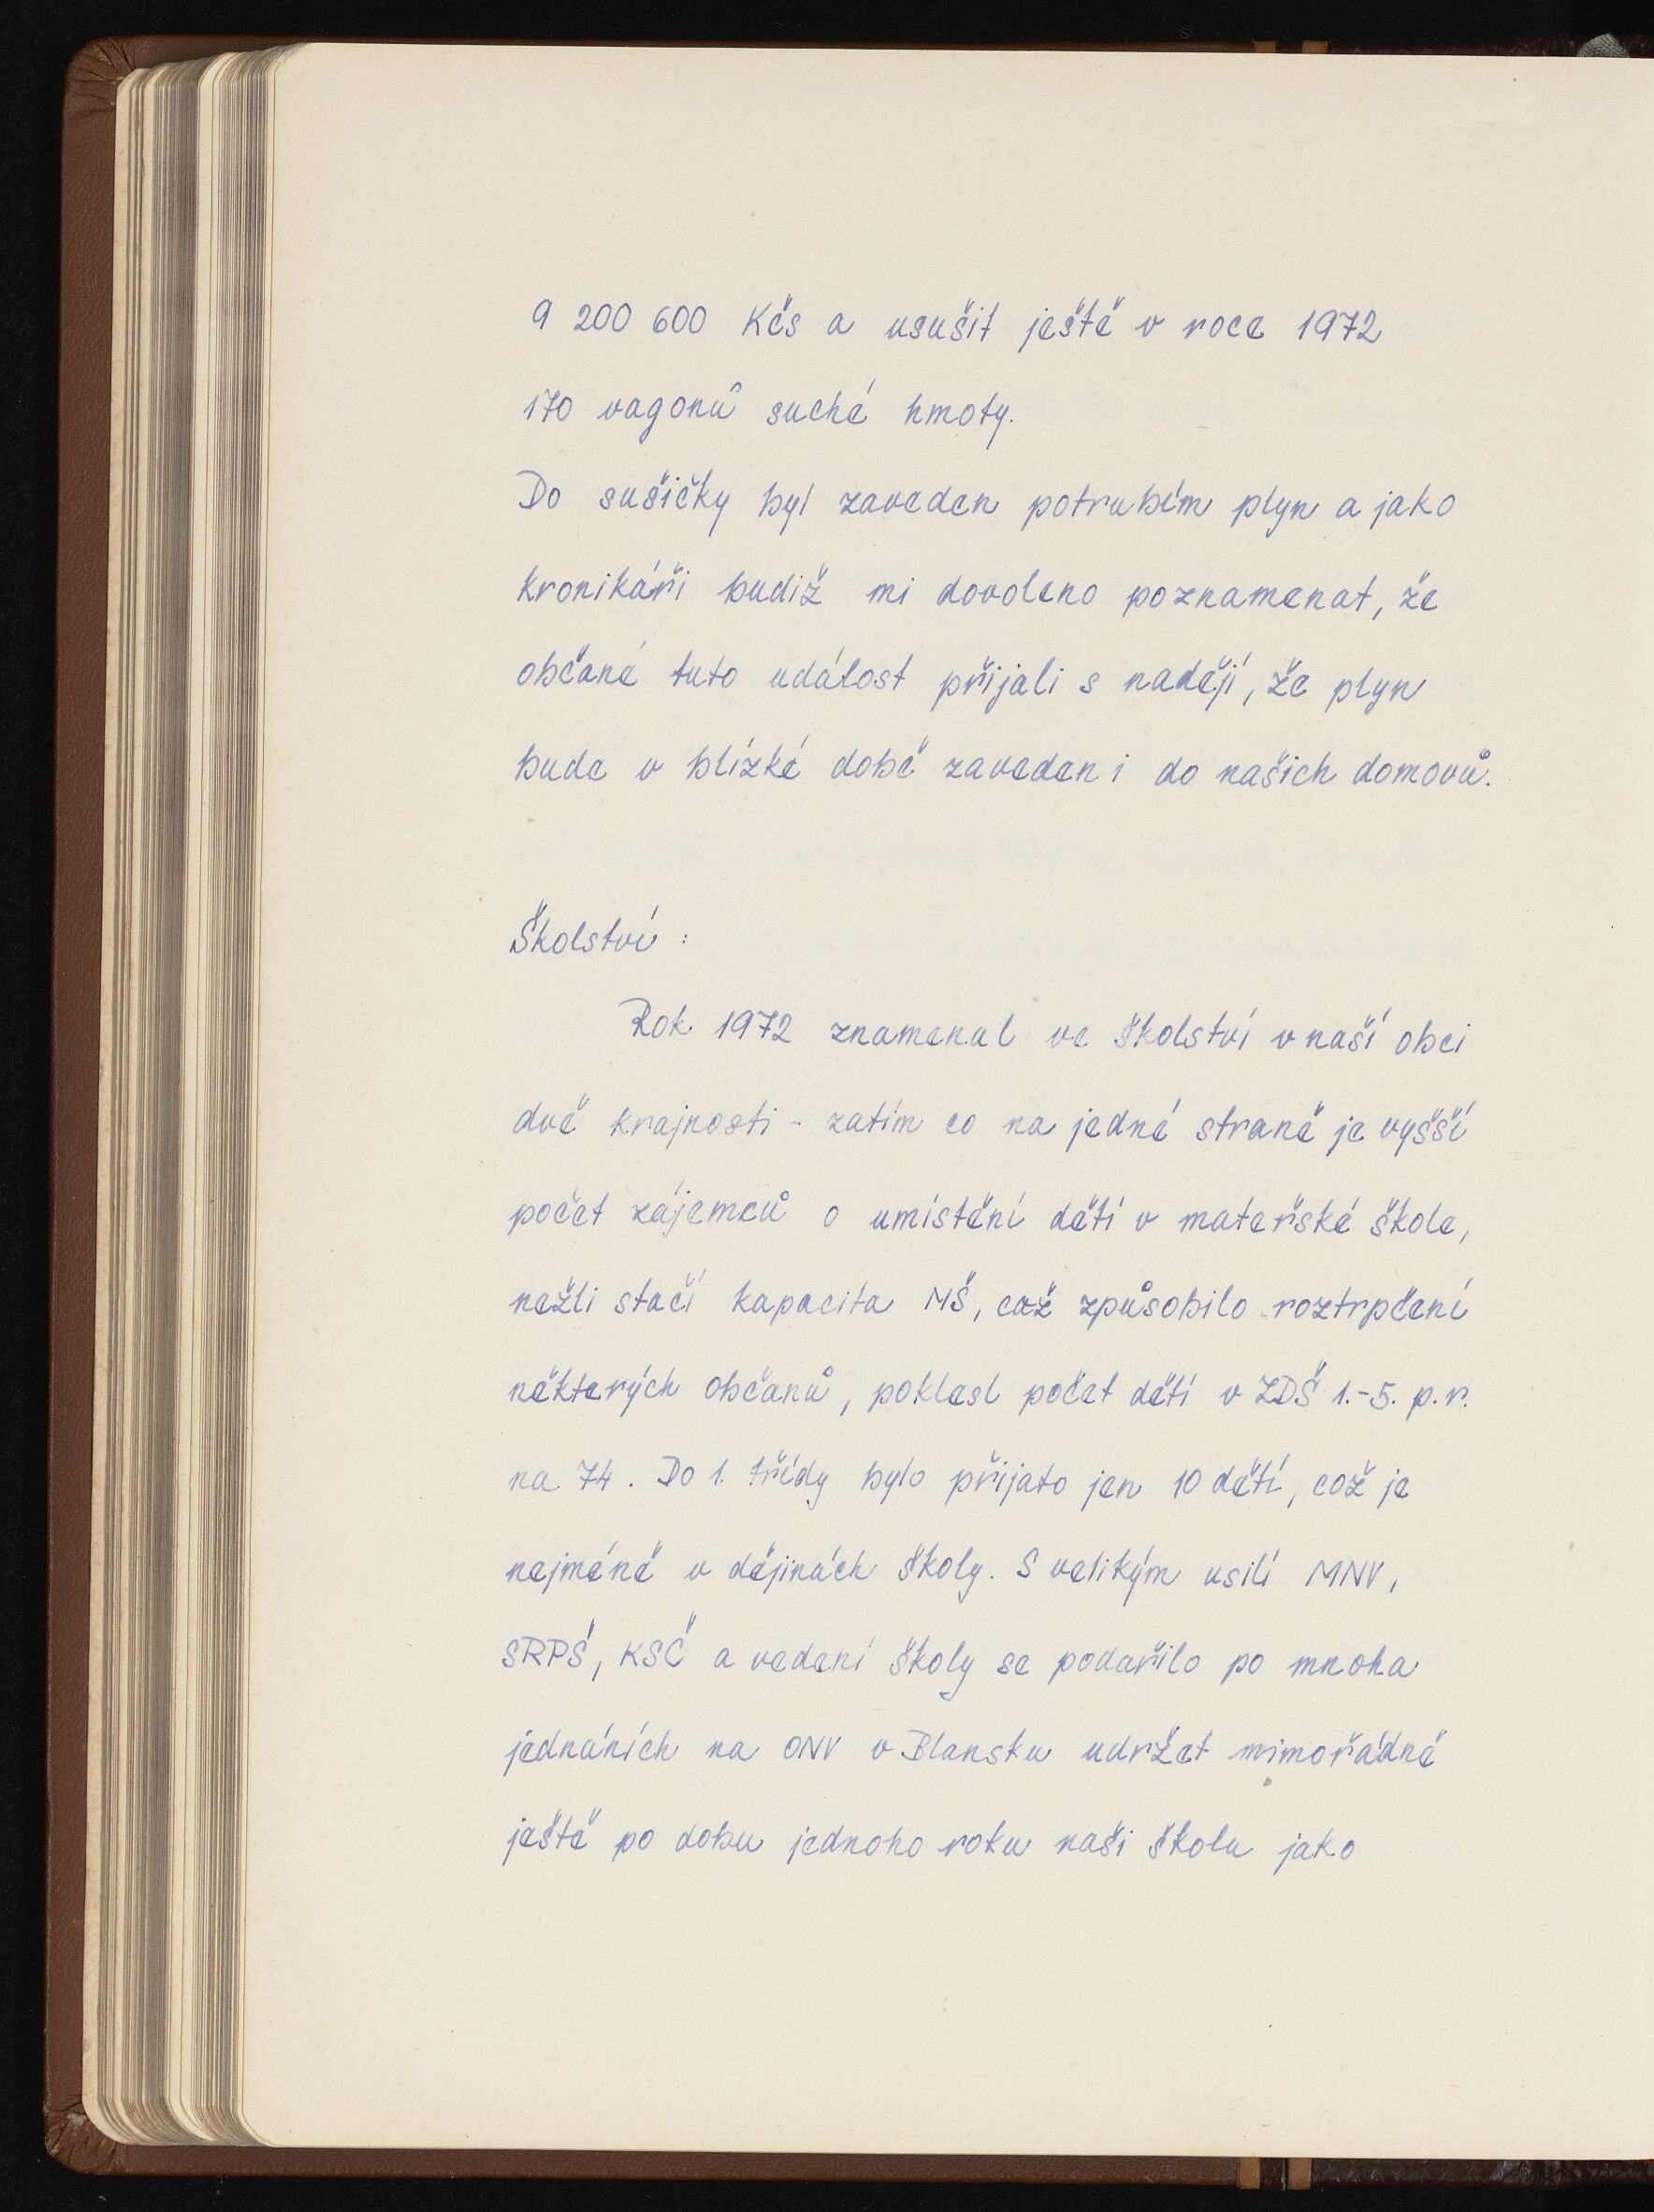 9 200 600 Kčs a usušit ještě v roce 1972
170 vagonů suché hmoty.
Do sušičky byl zaveden potrubím plyn a jako
kronikáři budiž mi dovoleno poznamenat, že
občané tuto událost přijali s nadějí, že plyn
bude v blízké době zaveden i do našich domovů.
Školství :
Rok 1972 znamenal ve školství v naší obci
dvě krajnosti - zatím co na jedné straně je vyšší
počet zájemců o umístění dětí v mateřské škole,
nežli stačí kapacita MŠ, což způsobilo roztrpčení
některých občanů, poklesl počet dětí v ZDŠ 1.-5. p.r.
na 74. Do 1. třídy bylo přijato jen 10 dětí, což je
nejméně v dějinách školy. S velikým usilí MNV,
SRPŠ, KSČ a vedení školy se podařilo po mnoha
jednáních na ONV v Blansku udržet mimořádně
ještě po dobu jednoho roku naši školu jako